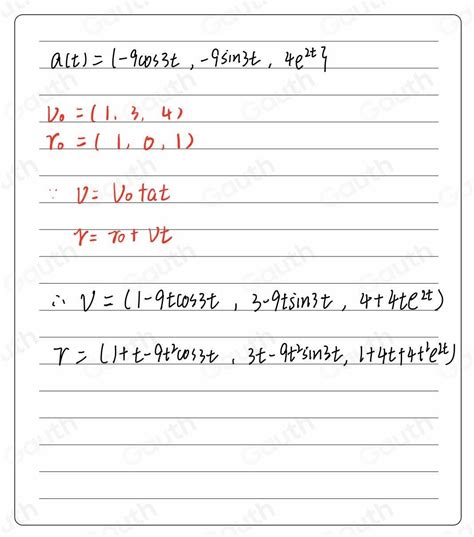 a(t) = {-9cos3t , -9sin3t, 4e^{2t}}
V₀ = (1, 3, 4)
r₀ = (1, 0, 1)
∵ V = V₀+at
r = r₀ + Vt
∴ V = (1-9tcos3t , 3-9tsin3t, 4+4te^{2t})
r = (1+t-9t²cos3t , 3t-9t²sin3t, 1+4t+4t²e^{2t})